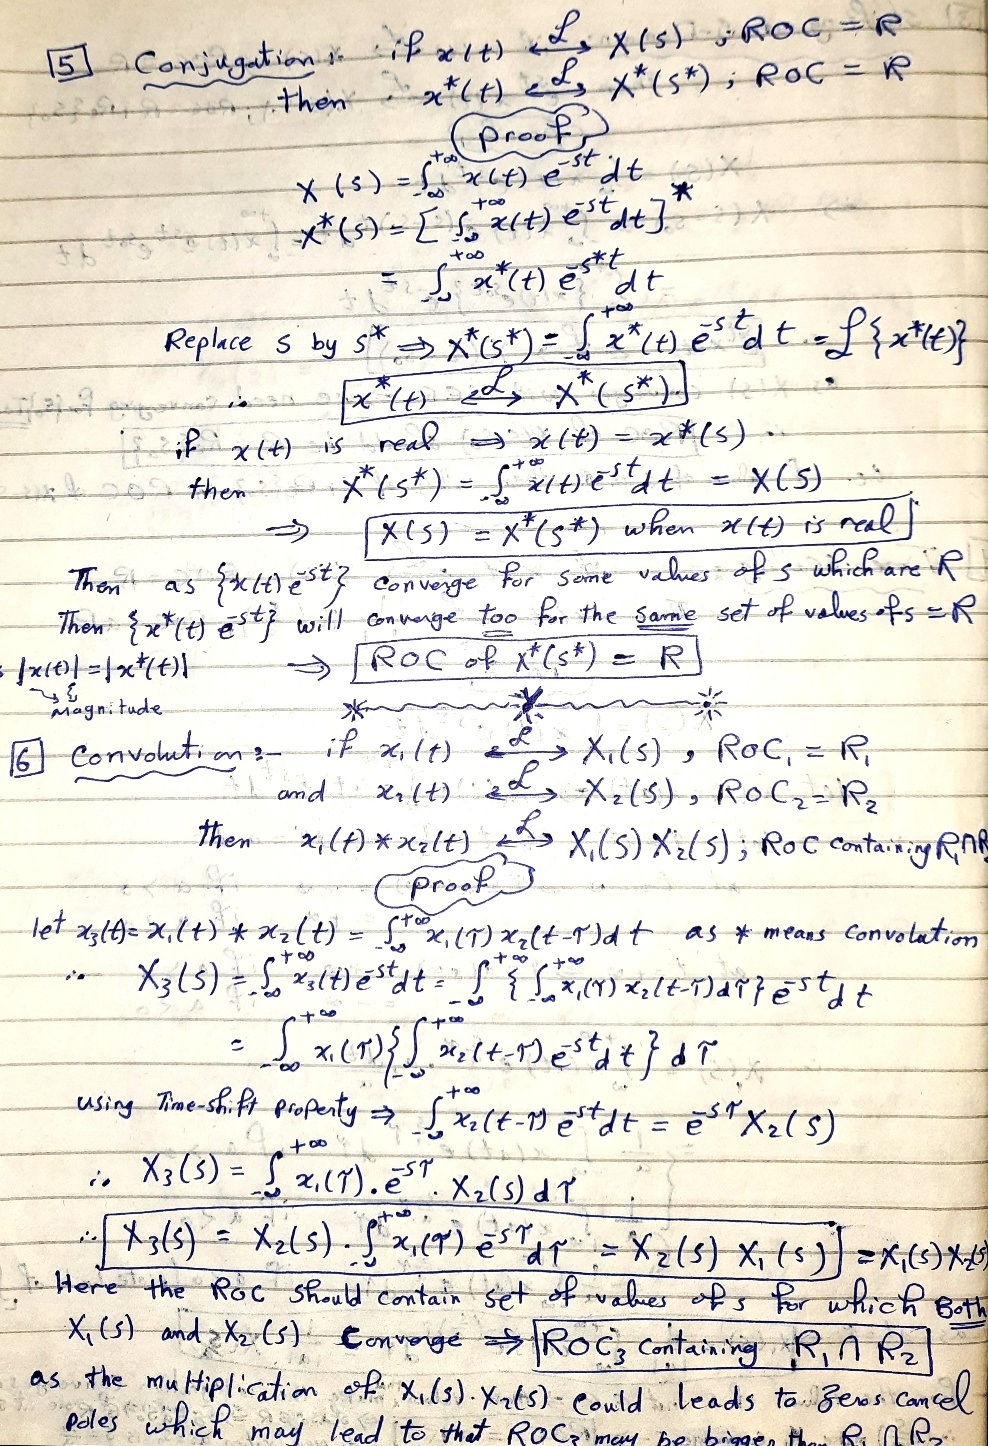 [5] Conjugation :- if x(t) ⟷ᴸ X(s) ; ROC = R
then x*(t) ⟷ᴸ X*(s*) ; ROC = R
Proof
X(s) = ∫_{-∞}^{+∞} x(t) e^{-st} dt
X*(s) = [∫_{-∞}^{+∞} x(t) e^{-st} dt]*
= ∫_{-∞}^{+∞} x*(t) e^{-s*t} dt
Replace s by s* ⇒ X*(s*) = ∫_{-∞}^{+∞} x*(t) e^{-st} dt = ℒ{x*(t)}
∴ x*(t) ⟷ᴸ X*(s*).
if x(t) is real ⇒ x(t) = x*(s) ..
then X*(s*) = ∫_{-∞}^{+∞} x(t) e^{-st} dt = X(s)
⇒ X(s) = X*(s*) when x(t) is real
Then as {x(t) e^{-st}} converge for some values of s which are R
Then {x*(t) e^{-st}} will converge too for the same set of values of s = R
|x(t)| = |x*(t)| ⇒ ROC of X*(s*) = R
Magnitude
[6] Convolution :- if x₁(t) ⟷ᴸ X₁(s) , ROC₁ = R₁
and x₂(t) ⟷ᴸ X₂(s) , ROC₂ = R₂
then x₁(t) * x₂(t) ⟷ᴸ X₁(s) X₂(s) ; ROC containing R₁∩R
Proof
let x₃(t) = x₁(t) * x₂(t) = ∫_{-∞}^{+∞} x₁(τ) x₂(t-τ) dτ as * means convolution
∴ X₃(s) = ∫_{-∞}^{+∞} x₃(t) e^{-st} dt = ∫_{-∞}^{+∞} {∫_{-∞}^{+∞} x₁(τ) x₂(t-τ) dτ} e^{-st} dt
= ∫_{-∞}^{+∞} x₁(τ) {∫_{-∞}^{+∞} x₂(t-τ) e^{-st} dt} dτ
using Time-shift property ⇒ ∫_{-∞}^{+∞} x₂(t-τ) e^{-st} dt = e^{-sτ} X₂(s)
∴ X₃(s) = ∫_{-∞}^{+∞} x₁(τ) . e^{-sτ} . X₂(s) dτ
∴ X₃(s) = X₂(s) . ∫_{-∞}^{+∞} x₁(τ) e^{-sτ} dτ = X₂(s) X₁(s) = X₁(s) X₂(s)
. Here the ROC should contain set of values of s for which Both
X₁(s) and X₂(s) Converge ⇒ ROC₃ containing R₁ ∩ R₂
as the multiplication of X₁(s) . X₂(s) could leads to zeros cancel
poles which may lead to that ROC₃ may be bigger than R₁ ∩ R₂